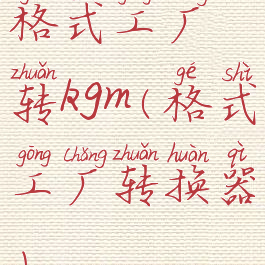 格式工厂
zhuǎn gé shì
转kgm(格式
gōng chǎng zhuǎn huàn qì
工厂转换器
)